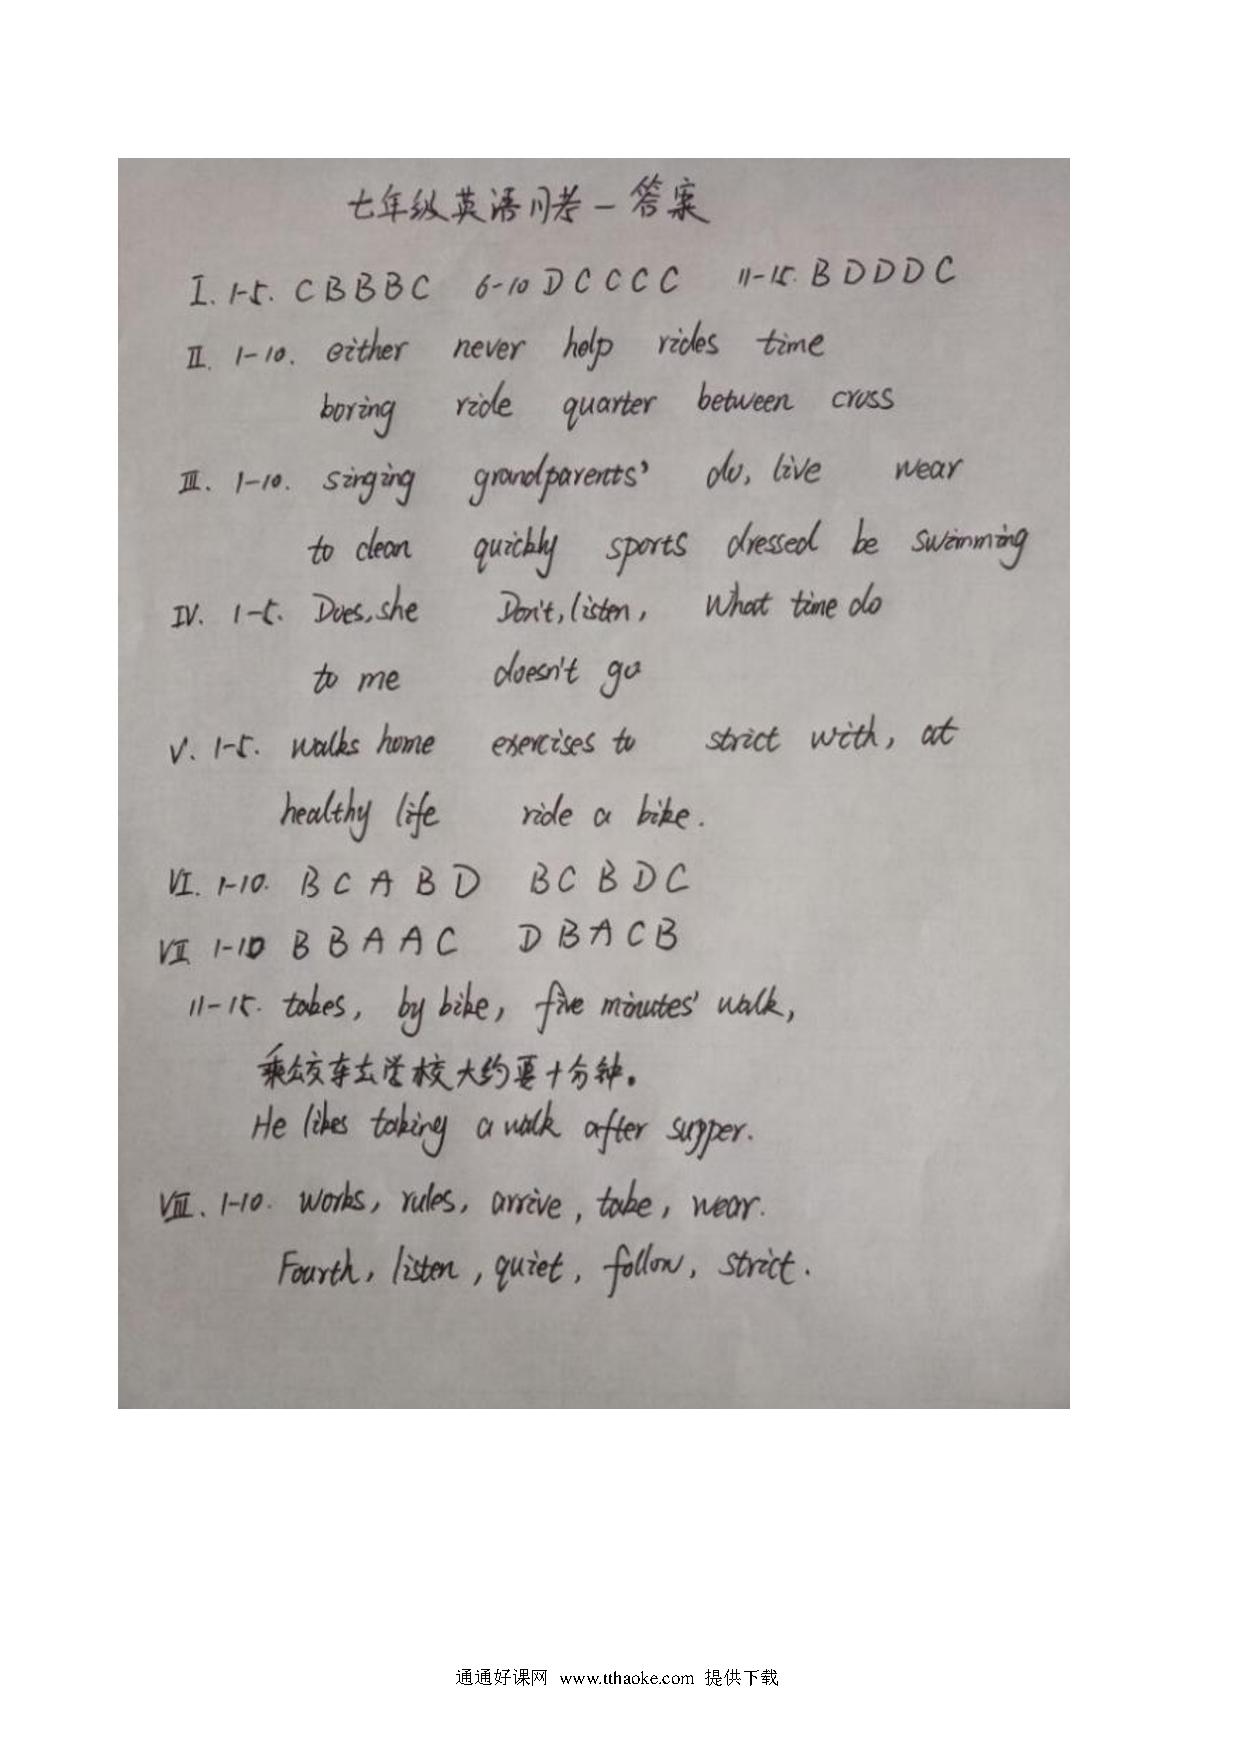 七年级英语月考一答案
I. 1-5. C B B B C 6-10 D C C C C 11-15. B D D D C
II. 1-10. either never help rides time
boring ride quarter between cross
III. 1-10. singing grandparents' do, live wear
to clean quickly sports dressed be swimming
IV. 1-5. Does, she Don't, listen, What time do
to me doesn't go
V. 1-5. walks home exercises to strict with, at
healthy life ride a bike.
VI. 1-10. B C A B D B C B D C
VII 1-10 B B A A C D B A C B
11-15. takes, by bike, five minutes' walk,
乘公交车去学校大约要十分钟。
He likes taking a walk after supper.
VIII. 1-10. works, rules, arrive, take, wear.
Fourth, listen, quiet, follow, strict.
通通好课网 www.tthaoke.com 提供下载